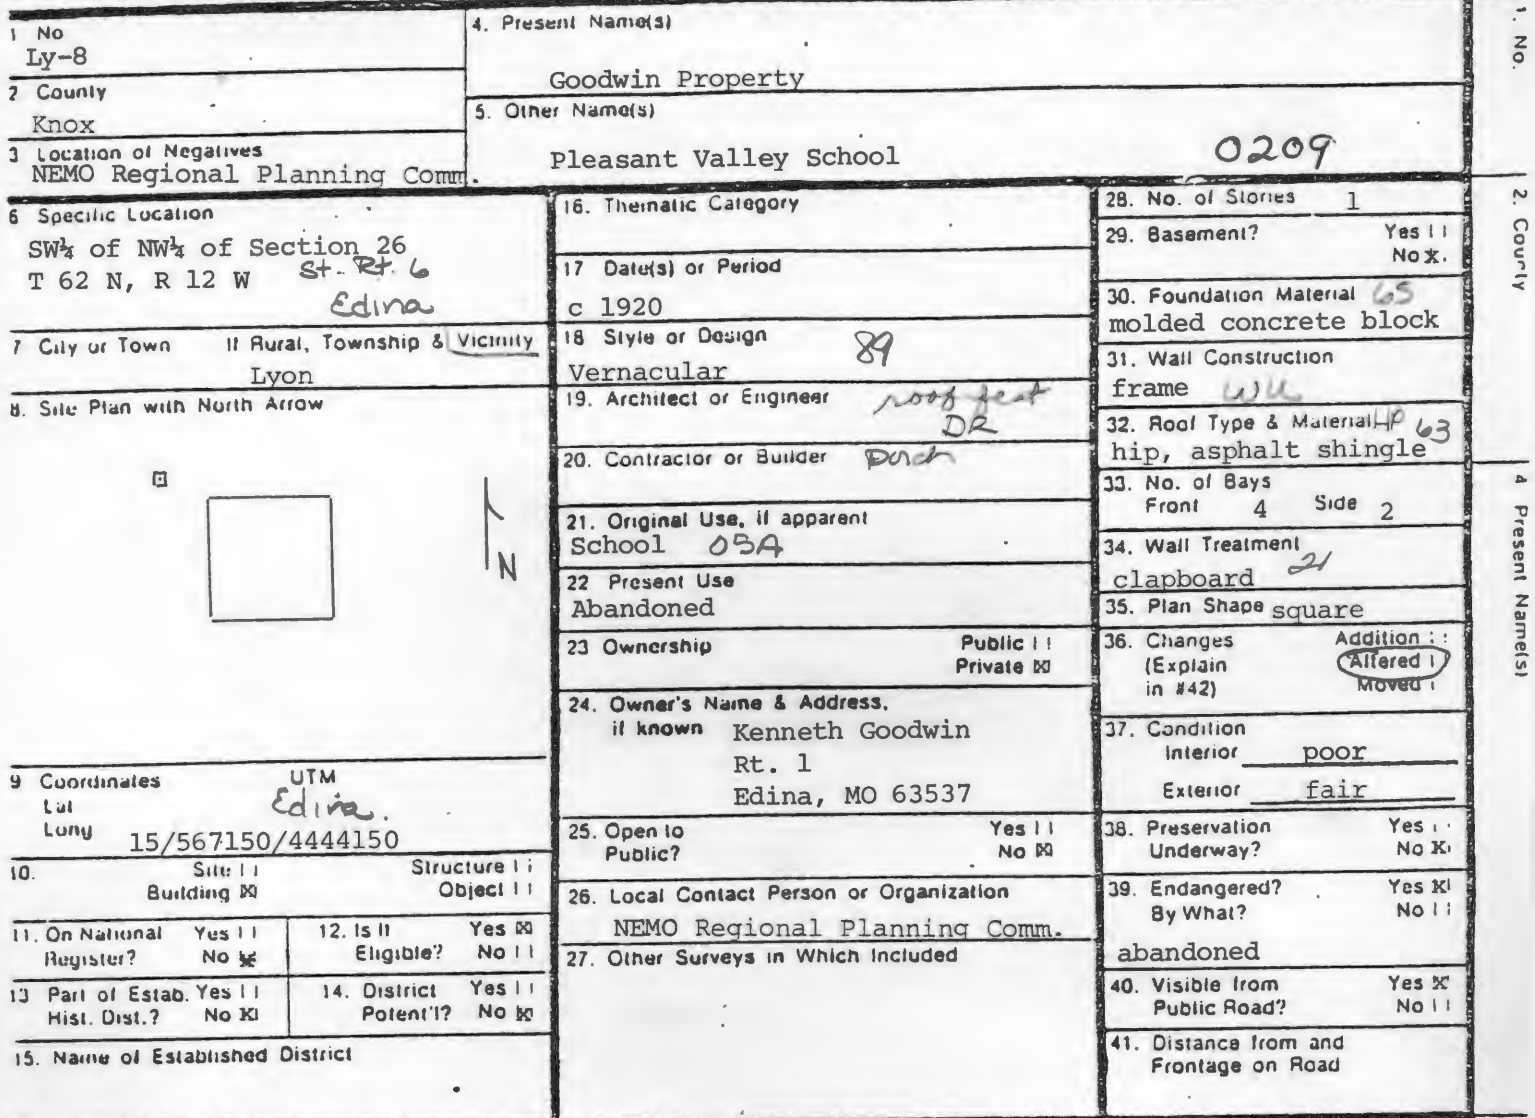 1 No
Ly-8
2 County
Knox
3 Location of Negatives
NEMO Regional Planning Comm.
4. Present Name(s)
Goodwin Property
5. Other Name(s)
Pleasant Valley School
0209
6 Specific Location
SW¼ of NW¼ of Section 26
T 62 N, R 12 W St. Rt. 6
Edina
7 City or Town If Rural, Township & Vicinity
Lyon
8. Site Plan with North Arrow
N
9 Coordinates UTM
Lat Edina.
Long 15/567150/4444150
10. Site Structure
Building ☒ Object
11. On National Register? Yes No ☒
12. Is It Eligible? Yes ☒ No
13 Part of Estab. Hist. Dist.? Yes No ☒
14. District Potent'l? Yes No ☒
15. Name of Established District
16. Thematic Category
17 Date(s) or Period
c 1920
18 Style or Design 89
Vernacular
19. Architect or Engineer roof feat
DR
20. Contractor or Builder Porch
21. Original Use, if apparent
School 05A
22 Present Use
Abandoned
23 Ownership Public
Private ☒
24. Owner's Name & Address,
if known Kenneth Goodwin
Rt. 1
Edina, MO 63537
25. Open to Yes
Public? No ☒
26. Local Contact Person or Organization
NEMO Regional Planning Comm.
27. Other Surveys in Which Included
28. No. of Stories 1
29. Basement? Yes
No x
30. Foundation Material 65
molded concrete block
31. Wall Construction
frame
32. Roof Type & Material HP 63
hip, asphalt shingle
33. No. of Bays
Front 4 Side 2
34. Wall Treatment 21
clapboard
35. Plan Shape square
36. Changes Addition
(Explain Altered
in #42) Moved
37. Condition
Interior poor
Exterior fair
38. Preservation Yes
Underway? No X
39. Endangered? Yes X
By What? No
abandoned
40. Visible from Yes X
Public Road? No
41. Distance from and
Frontage on Road
1. No.
2. County
4 Present Name(s)